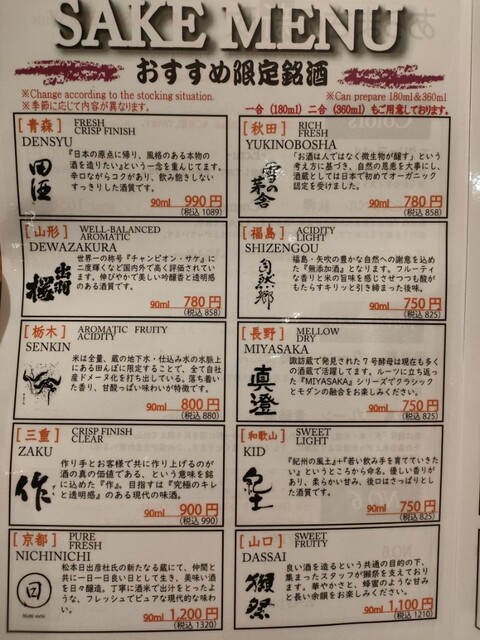 SAKE MENU
おすすめ限定銘酒
※Change according to the stocking situation.
※季節に応じて内容が異なります。
※Can prepare 180ml＆360ml
一合（180ml）二合（360ml）もご用意しております。
[青森]
FRESH
CRISP FINISH
DENSYU
田酒
『日本の原点に帰り、風格のある本物の
酒を造りたい』という一念を重んじてます。
辛口ながらコクがあり、飲み飽きしない
すっきりした酒質です。
90ml 990円
(税込 1089)
[秋田]
RICH
FRESH
YUKINOBOSHA
雪の茅舎
「お酒は人ではなく微生物が醸す」という
考え方に基づき、自然の恩恵を大事にし、
酒蔵としては日本で初めてオーガニック
認定を受けました。
90ml 780円
(税込 858)
[山形]
WELL-BALANCED
AROMATIC
DEWAZAKURA
出羽桜
世界一の称号『チャンピオン・サケ』に
二度輝くなど国内外で高く評価されてい
ます。伸びやかで美しい吟醸香と透明感
のある酒質です。
90ml 780円
(税込 858)
[福島]
ACIDITY
LIGHT
SHIZENGOU
自然郷
福島・矢吹の豊かな自然への謝意を込め
た『無添加酒』となります。フルーティ
な香りと米の旨味を感じさせつつも酸が
もたらすキリッと引き締まった後味。
90ml 750円
(税込 825)
[栃木]
AROMATIC FRUITY
ACIDITY
SENKIN
米は全量、蔵の地下水・仕込み水の水脈上
にある田んぼに限定することで、全て自社
産ドメーヌ化を打ち出している。落ち着い
た香り、甘酸っぱい味わいが特徴です。
90ml 800円
(税込 880)
[長野]
MELLOW
DRY
MIYASAKA
真澄
諏訪蔵で発見された７号酵母は現在も多く
の酒蔵で活躍してます。ルーツに立ち返っ
た『MIYASAKA』シリーズでクラシック
とモダンの融合をお楽しみください。
90ml 750円
(税込 825)
[三重]
CRISP FINISH
CLEAR
ZAKU
作
作り手とお客様で共に作り上げるのが
酒の真の価値である、という意味を銘
に込めた『作』。目指すは『究極のキレ
と透明感』のある現代の味酒。
90ml 900円
(税込 990)
[和歌山]
SWEET
LIGHT
KID
紀土
『紀州の風土』+『若い飲み手を育てていきた
い』というところから命名。優しい香りが
あり、柔らかい甘み、後口はさっぱりとし
た酒質です。
90ml 750円
(税込 825)
[京都]
PURE
FRESH
NICHINICHI
日
松本日出彦杜氏の新たなる蔵にて、仲間と
共に一日一日良い日として生き、美味い酒
を日々醸造。丁寧に酒米で出汁をとったよ
うな、フレッシュでピュアな現代的な味わ
い。
90ml 1,200円
(税込 1320)
[山口]
SWEET
FRUITY
DASSAI
獺祭
良い酒を造るという共通の目的の下、
集まったスタッフが獺祭を支えており
ます。華やかさと、蜂蜜のような甘み
と長い余韻をお楽しみください。
90ml 1,100円
(税込 1210)